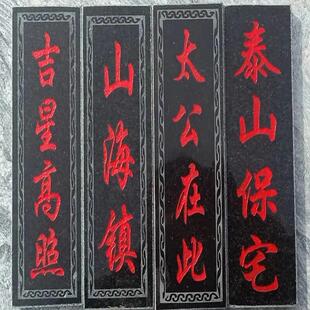 吉星高照
山海镇
太公在此
泰山保宅